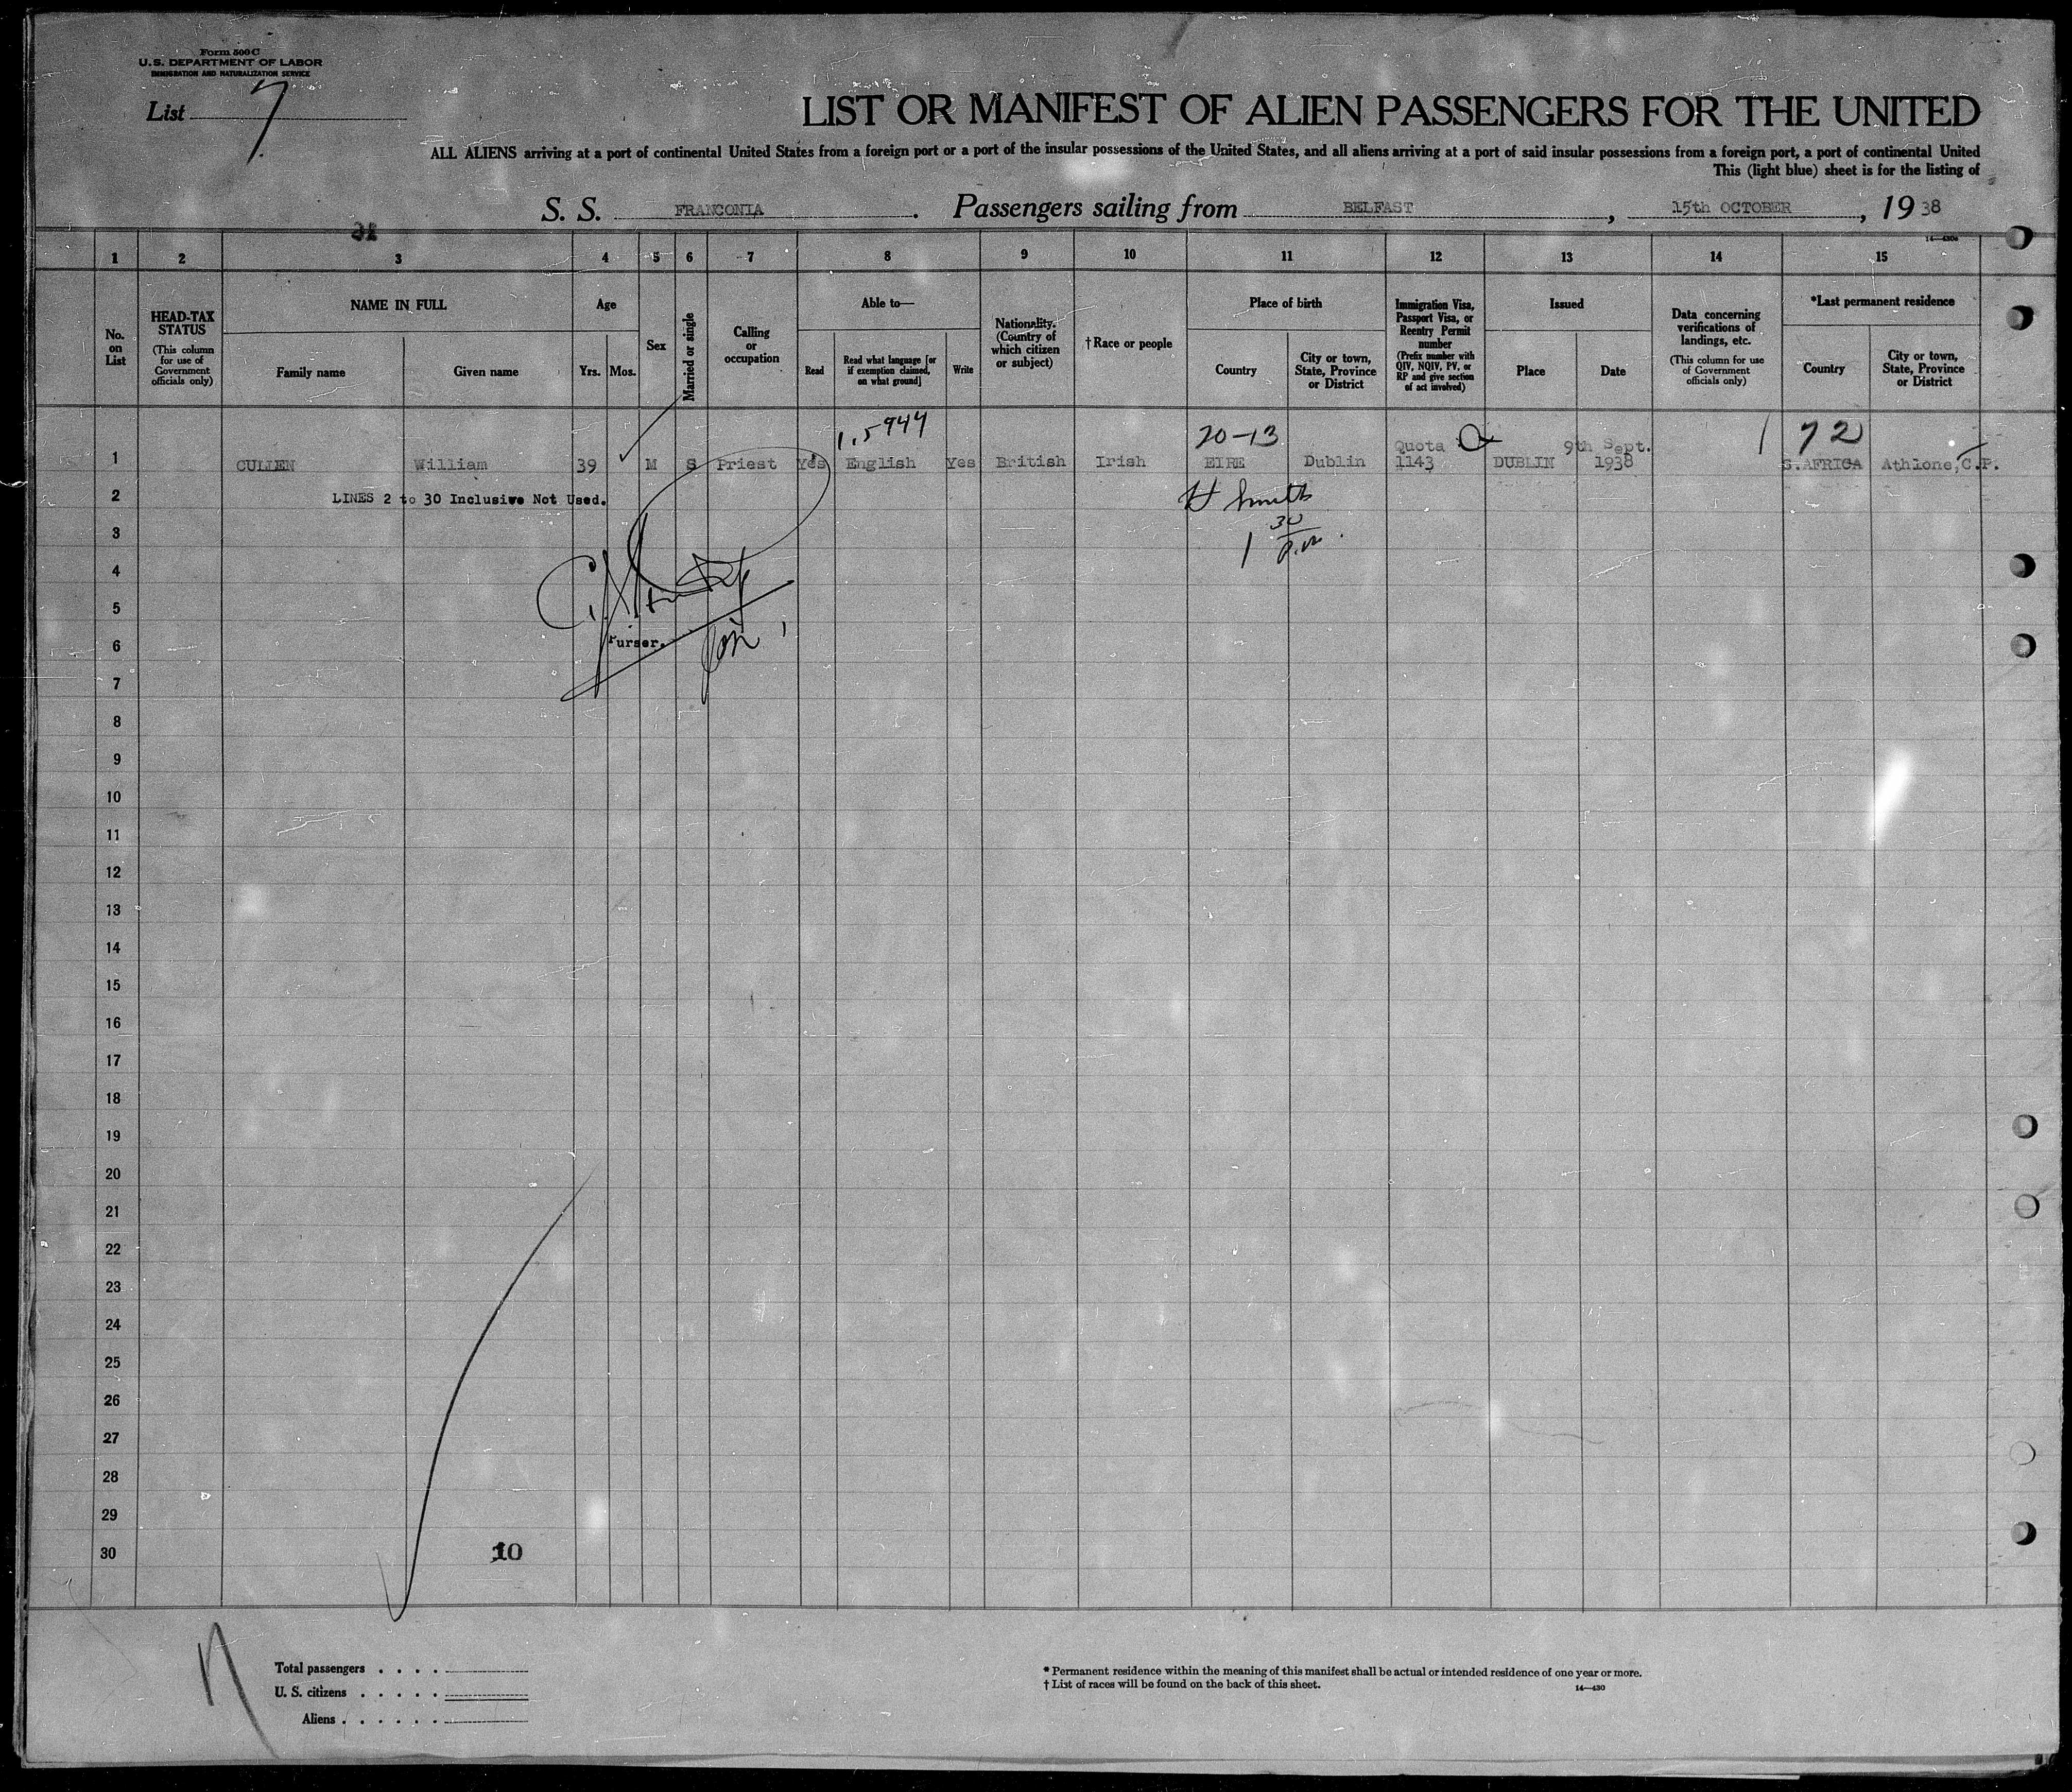 Form 500 C
U. S. DEPARTMENT OF LABOR
IMMIGRATION AND NATURALIZATION SERVICE
List 7
LIST OR MANIFEST OF ALIEN PASSENGERS FOR THE UNITED
ALL ALIENS arriving at a port of continental United States from a foreign port or a port of the insular possessions of the United States, and all aliens arriving at a port of said insular possessions from a foreign port, a port of continental United
This (light blue) sheet is for the listing of
S. S. FRANCONIA. Passengers sailing from BELFAST, 15th OCTOBER, 1938
1 2 3 4 5 6 7 8 9 10 11 12 13 14 15
No. on List
HEAD-TAX STATUS
(This column for use of Government officials only)
NAME IN FULL
Family name
Given name
Age
Yrs.
Mos.
Sex
Married or single
Calling or occupation
Able to—
Read
Read what language [or if exemption claimed, on what ground]
Write
Nationality. (Country of which citizen or subject)
† Race or people
Place of birth
Country
City or town, State, Province or District
Immigration Visa, Passport Visa, or Reentry Permit number
(Prefix number with QIV, NQIV, PV, or RP and give section of act involved)
Issued
Place
Date
Data concerning verifications of landings, etc.
(This column for use of Government officials only)
*Last permanent residence
Country
City or town, State, Province or District
1.5944 20-13 Quota 9th Sept. 72
1 CULLEN William 39 M S Priest Yes English Yes British Irish EIRE Dublin 1143 DUBLIN 1938 S.AFRICA Athlone, C.P.
2 LINES 2 to 30 Inclusive Not Used.
H Smith
3
1 30 p.m.
4
5
6 Purser.
7
8
9
10
11
12
13
14
15
16
17
18
19
20
21
22
23
24
25
26
27
28
29
30 10
Total passengers . . . .
U. S. citizens . . . . .
Aliens . . . . . .
* Permanent residence within the meaning of this manifest shall be actual or intended residence of one year or more.
† List of races will be found on the back of this sheet.
14—430